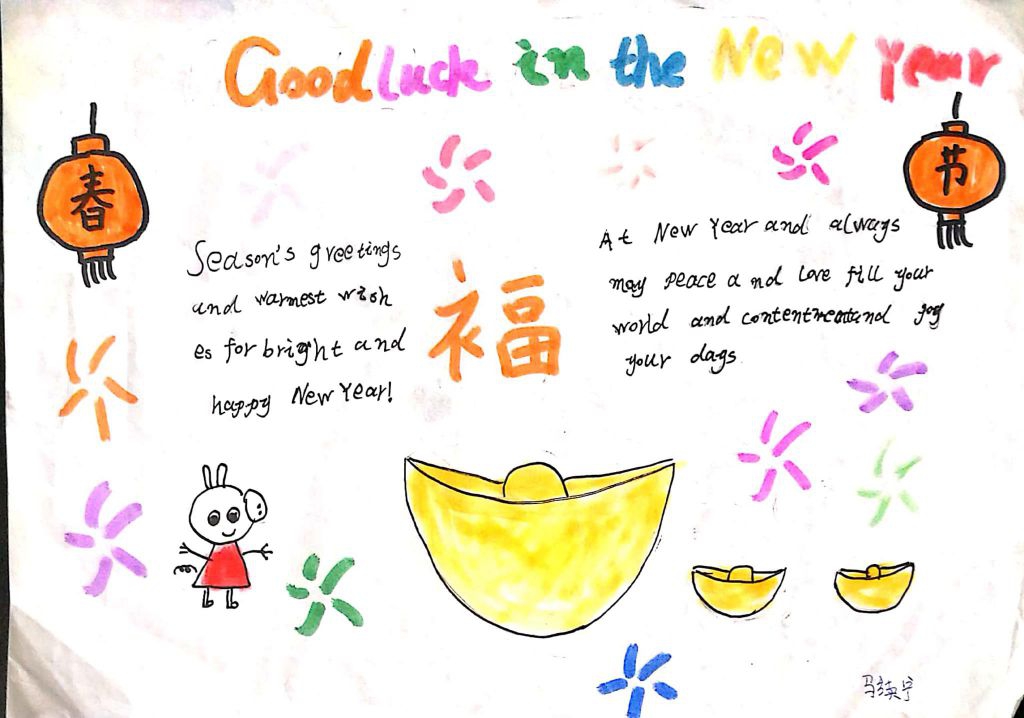 Good luck in the New Year
春
节
Season's greetings
and warmest wish
es for bright and
happy New Year!
福
At New Year and always
may peace and love fill your
world and contentment and joy
your days